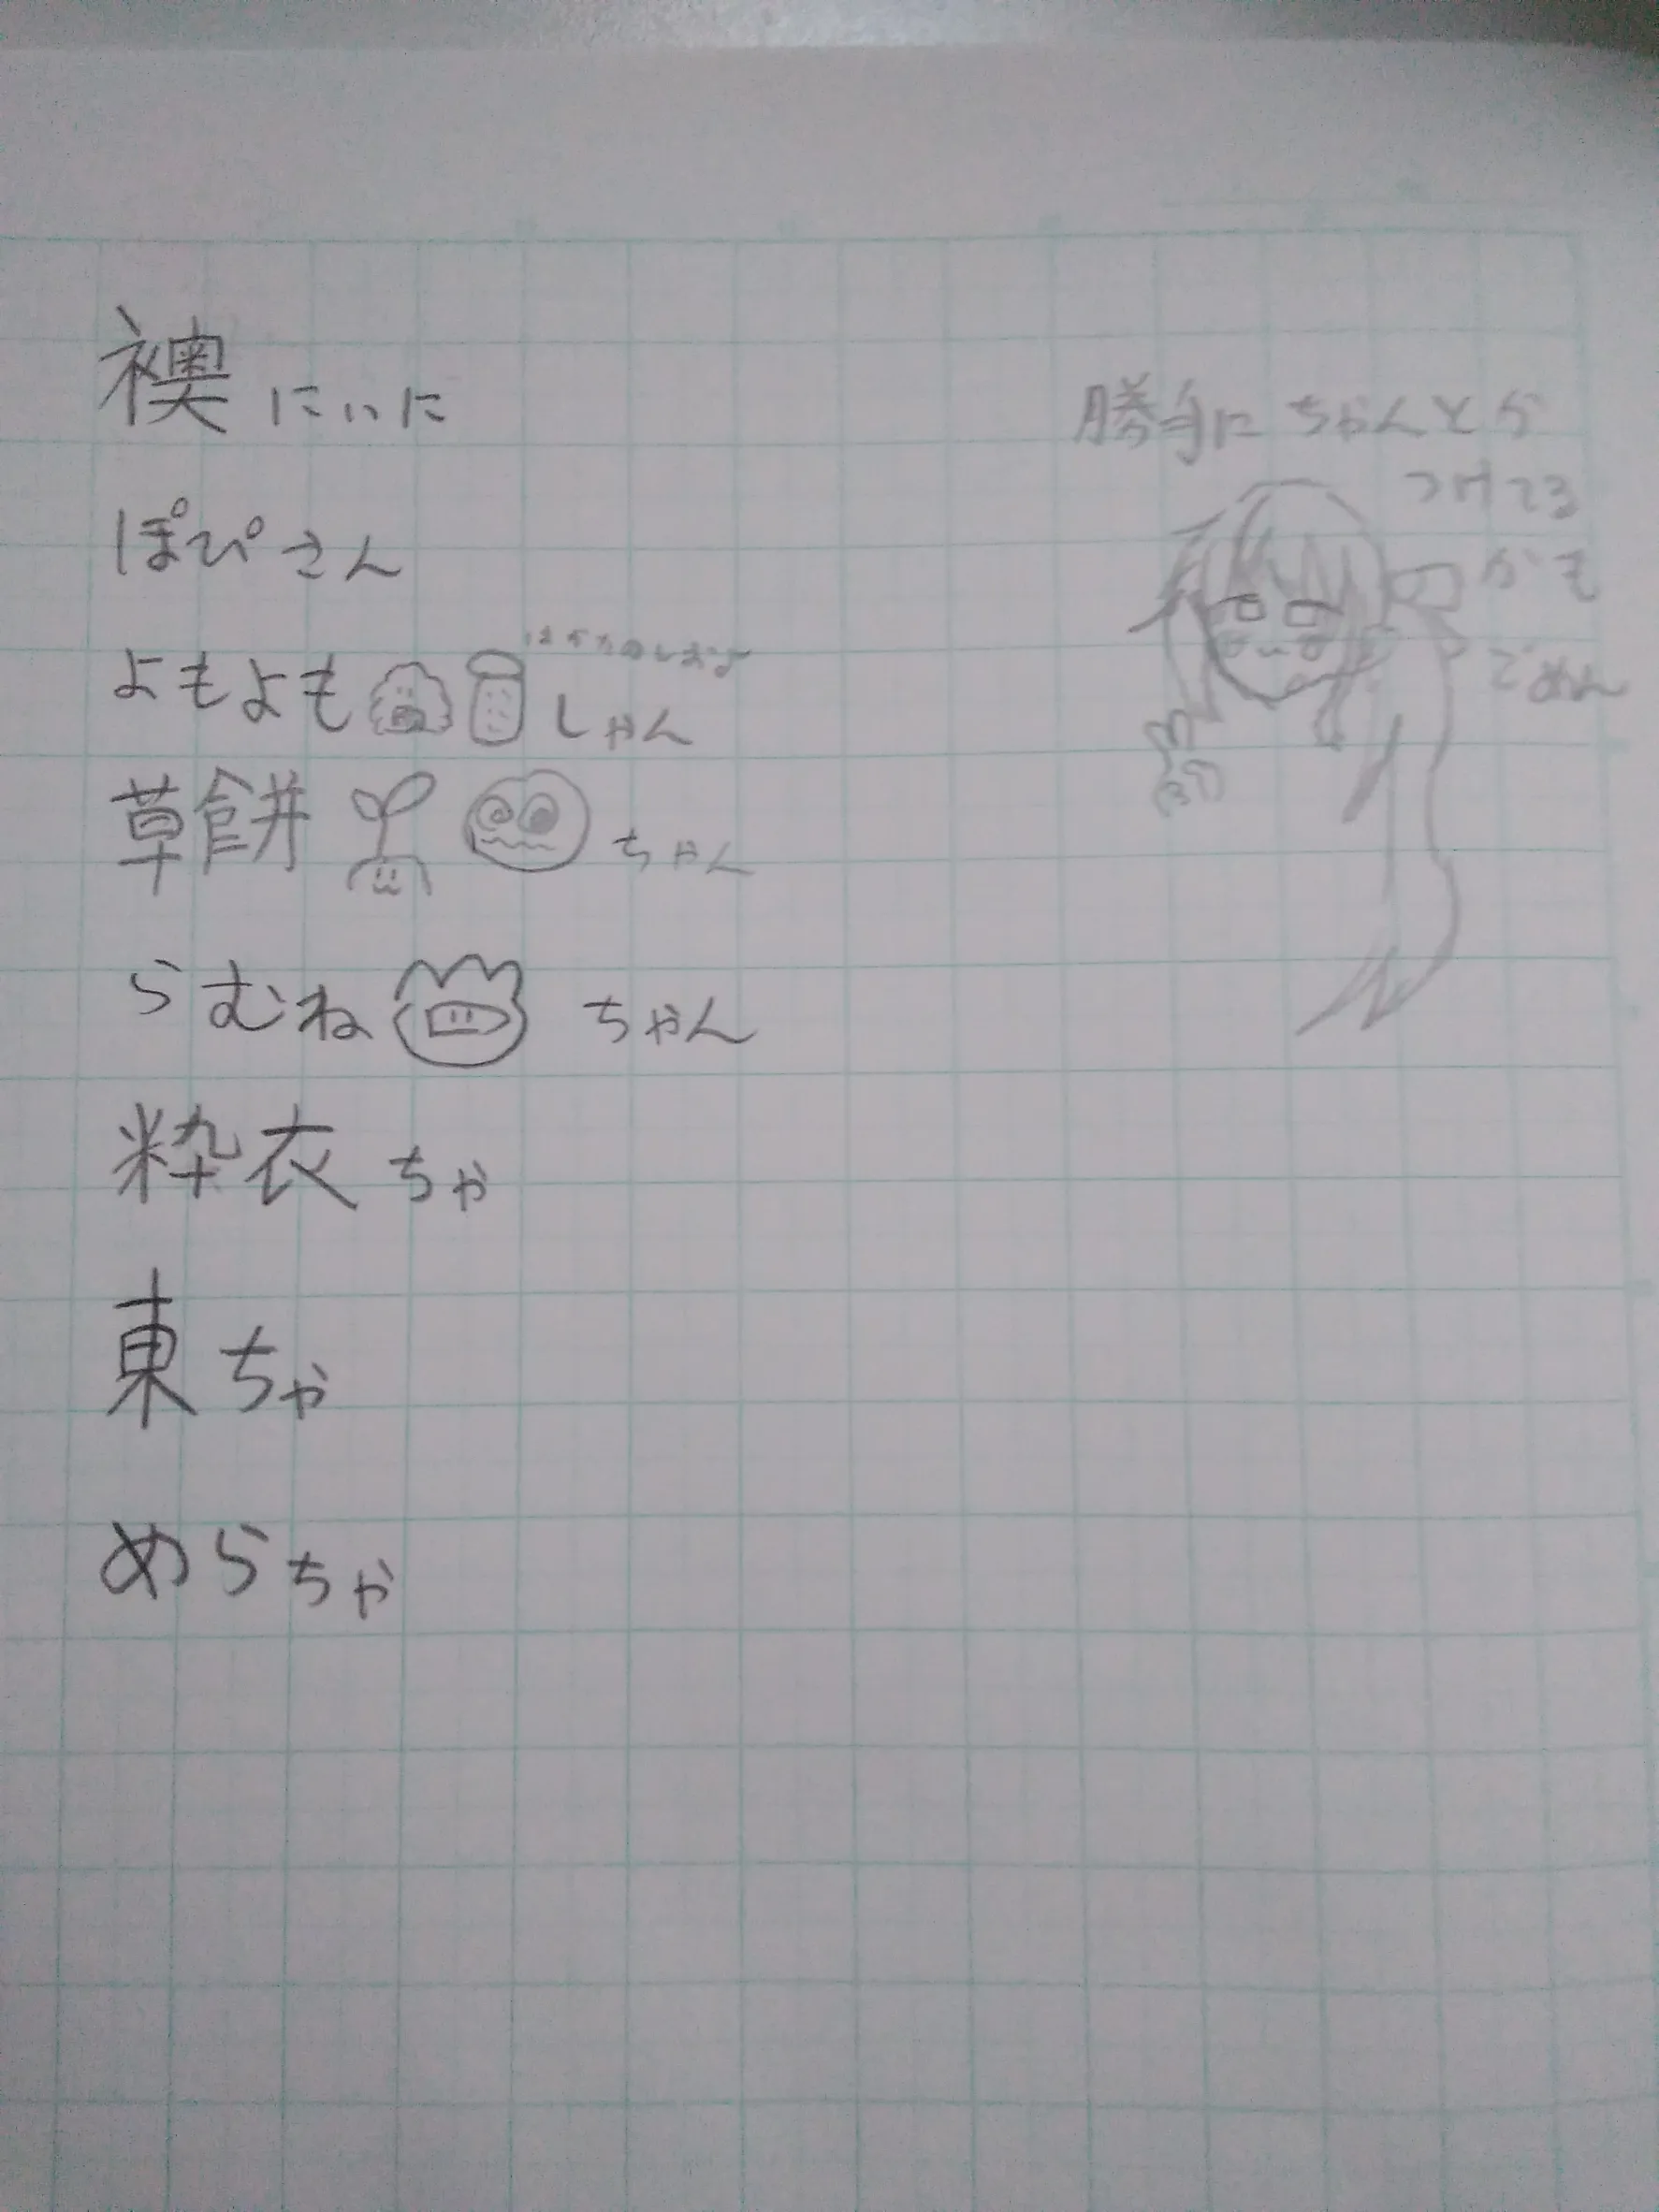 襖にぃに
ぽぴさん
よもよも しゃん
草餅 ちゃん
らむね ちゃん
粋衣ちゃ
東ちゃ
めらちゃ
勝手にちゃんとか
つけてる
かも
ごめん